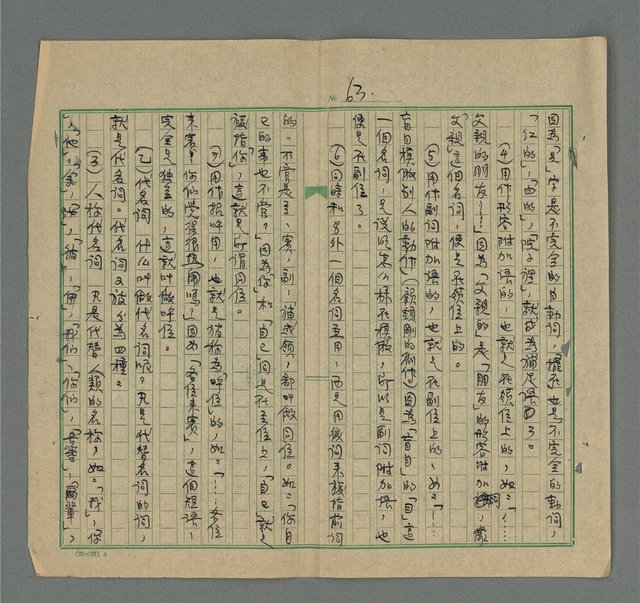 No 63.
因為「是」字是不完全的自動詞，擺在也是「不完全的動詞，
「紅的」，「白的」，「院子裡」，就成為補足語了。
④用作形容附加語的，也就是在領位上的，如：「……
父親的朋友……」因為「父親的」是「朋友」的形容附加語，像
「父親」這個名詞，便是在領位上的。
⑤用作副詞附加語的，也就是在副位上的，如：「……
盲目模仿別人的動作」（顧頡剛的創作）因為「盲目」的「目」這
一個名詞，是說明怎么樣在模倣，所以是副詞附加語，也
便是在副位了。
⑥同時和另外一個名詞並用，而是用後詞來複指前詞
的，不管是主，賓，副，補或領，都叫做同位。如：「你自
己的事也不管？」因為「你」和「自己」同是在主位上，「自己」就是
複指「你」，這就是所謂同位。
⑦用作招呼用，也就是被稱為「呼位」的，如：「……各位
來賓！你們覺得很困嗎？」因為「各位來賓」，這個短語，
完全是独立的，這就叫做呼位。
(乙)代名詞 什么叫做代名詞呢？凡是代替名詞的詞，
就是代名詞。代名詞又被分為四種：
(1)人称代名詞 凡是代替人類的名称，如：「我」，「你
」，「他」，
(20×25) A